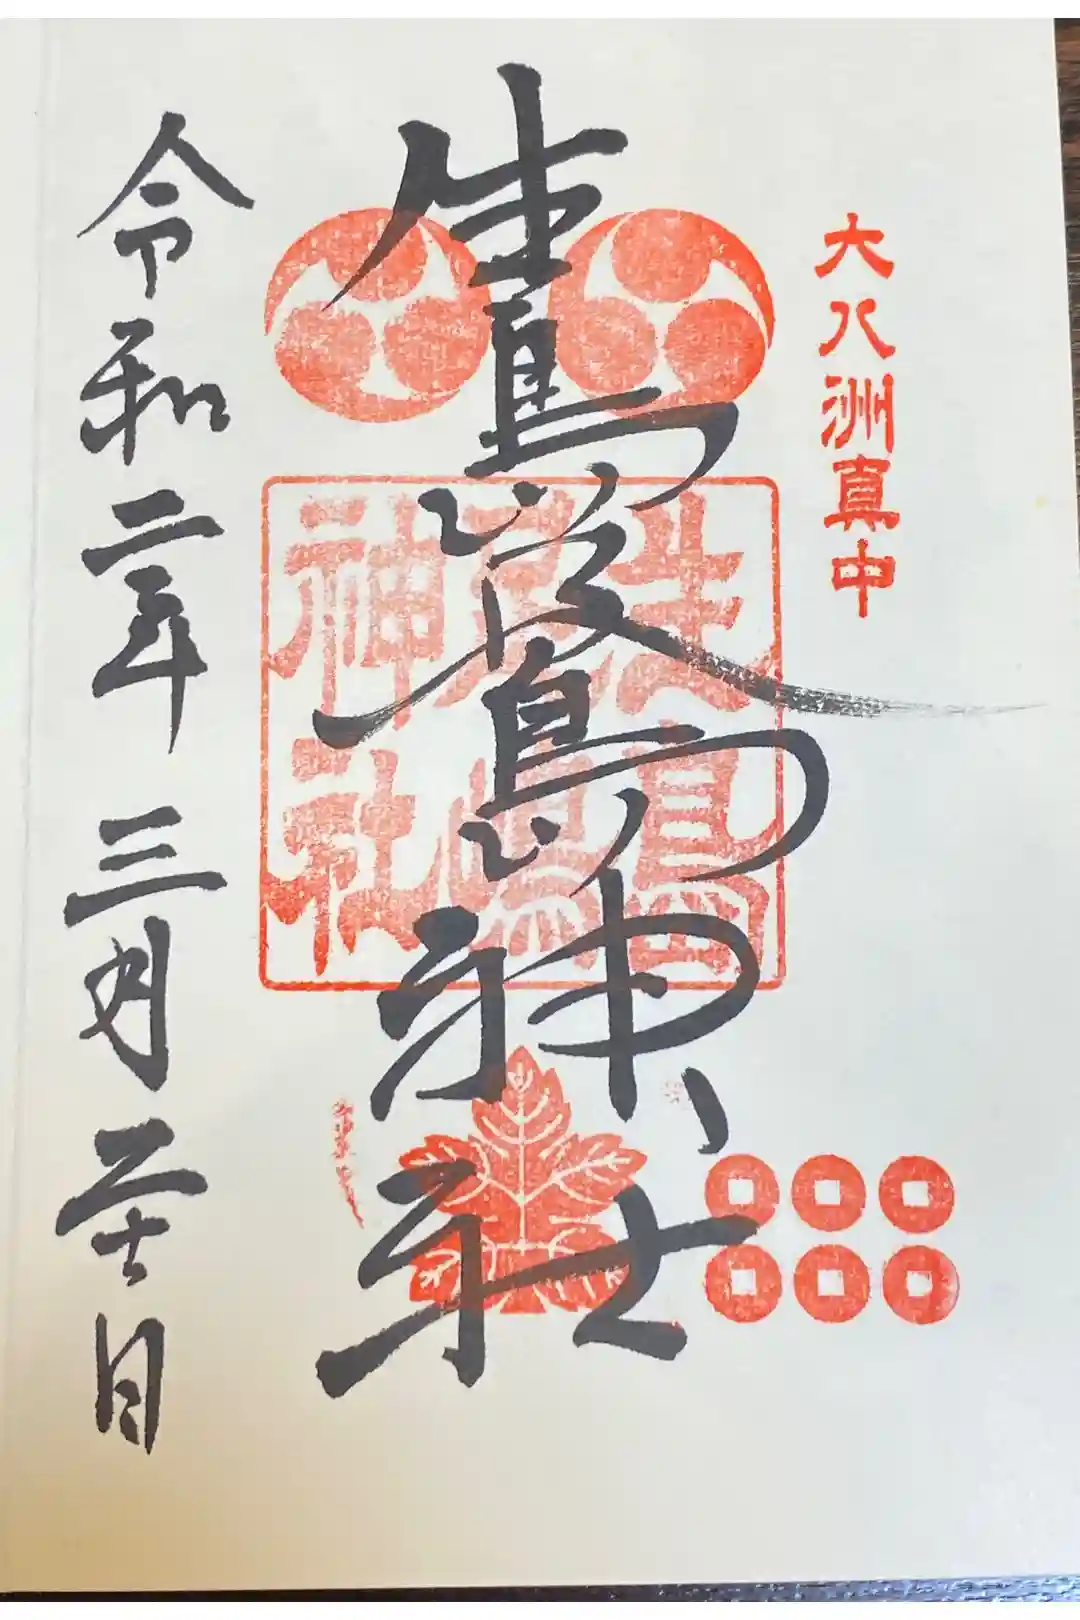 大八洲真中
生島足島神社
生島
足嶋
神社
令和二年三月二十日